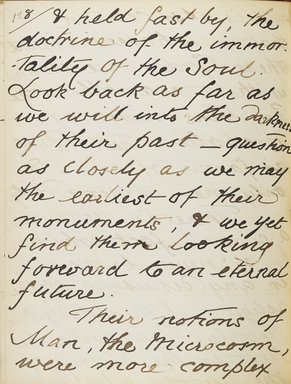 198/ & held fast by, the
doctrine of the immor-
tality of the Soul.
Look back as far as
we will into the darkness
of their past – question
as closely as we may
the earliest of their
monuments, & we yet
find them looking
forward to an eternal
future.
Their notions of
Man, the Microcosm,
were more complex